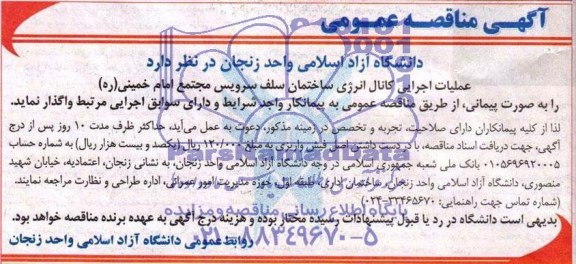 آگهی مناقصه عمومی
دانشگاه آزاد اسلامی واحد زنجان در نظر دارد
عملیات اجرایی کانال انرژی ساختمان سلف سرویس مجتمع امام خمینی(ره)
را به صورت پیمانی، از طریق مناقصه عمومی به پیمانکار واجد شرایط و دارای سوابق اجرایی مرتبط واگذار نماید.
لذا از کلیه پیمانکاران دارای صلاحیت، تجربه و تخصص در زمینه مذکور، دعوت به عمل می‌آید، حداکثر ظرف مدت ۱۰ روز پس از درج
آگهی، جهت دریافت اسناد مناقصه، با در دست داشتن اصل فیش واریزی به مبلغ ۱۲۰/۰۰۰ ریال (یکصد و بیست هزار ریال) به شماره حساب
۰۱۰۵۶۹۶۹۲۰۰۰۵ بانک ملی شعبه جمهوری اسلامی در وجه دانشگاه آزاد اسلامی واحد زنجان، به نشانی زنجان، اعتمادیه، خیابان شهید
منصوری، دانشگاه آزاد اسلامی واحد زنجان، ساختمان اداری، طبقه اول، حوزه مدیریت امور عمرانی، اداره طراحی و نظارت مراجعه نمایند.
(شماره تماس جهت راهنمایی: ۳۳۴۶۵۶۷۰-۰۲۴)
بدیهی است دانشگاه در رد یا قبول پیشنهادات رسیده مختار بوده و هزینه درج آگهی به عهده برنده مناقصه خواهد بود.
روابط عمومی دانشگاه آزاد اسلامی واحد زنجان
پایگاه اطلاع رسانی مناقصه و مزایده
۰۲۱-۸۸۳۴۹۶۷۰-۵